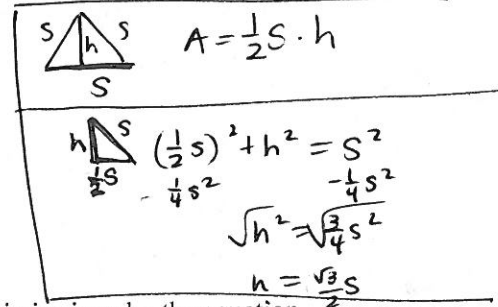 S h S A = 1/2 S · h
S
h S (1/2 s)² + h² = S²
1/2 S - 1/4 s² - 1/4 s²
√h² = √3/4 s²
h = √3/2 s